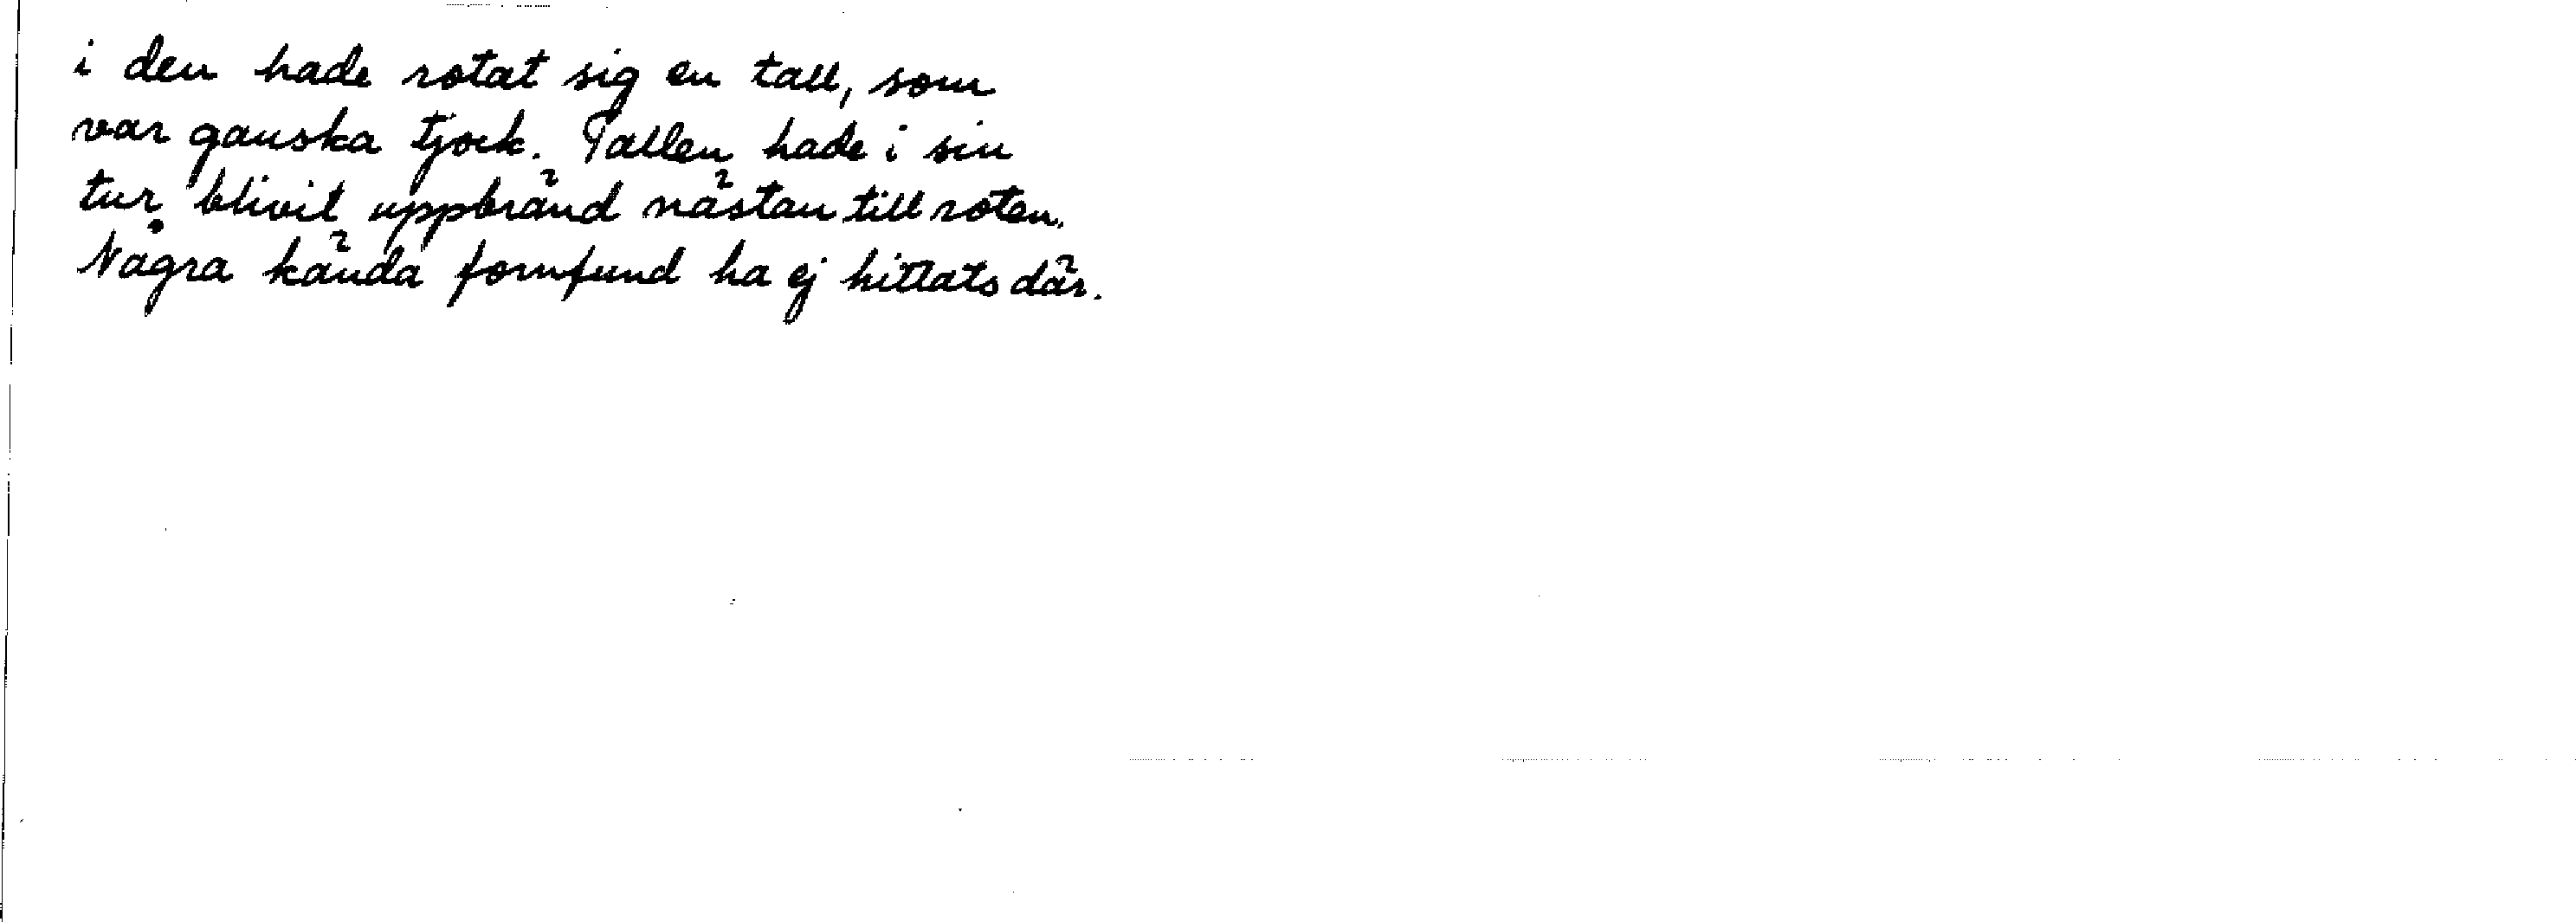 i den hade rotat sig en tall, som
var ganska tjock. Tallen hade i sin
tur blivit uppbränd nästan till roten.
Några kända fornfund ha ej hittats där.